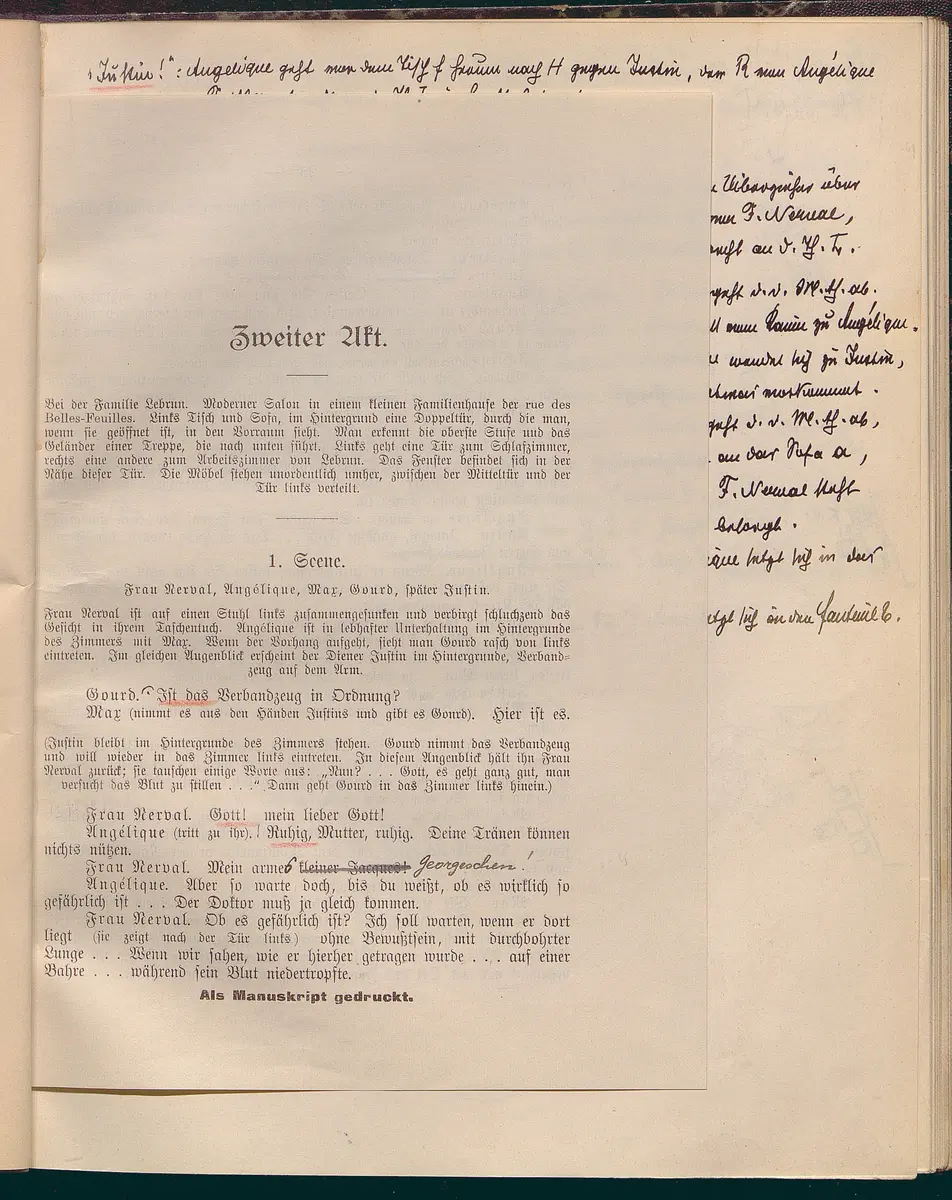 „Justin!“: Angelique geht vor dem Tisch f herum nach H gegen Justin, der R von Angélique
Zweiter Akt.
Bei der Familie Lebrun. Moderner Salon in einem kleinen Familienhause der rue des
Belles-Feuilles. Links Tisch und Sofa, im Hintergrund eine Doppeltür, durch die man,
wenn sie geöffnet ist, in den Vorraum sieht. Man erkennt die oberste Stufe und das
Geländer einer Treppe, die nach unten führt. Links geht eine Tür zum Schlafzimmer,
rechts eine andere zum Arbeitszimmer von Lebrun. Das Fenster befindet sich in der
Nähe dieser Tür. Die Möbel stehen unordentlich umher, zwischen der Mitteltür und der
Tür links verteilt.
1. Scene.
Frau Nerval, Angélique, Max, Gourd, später Justin.
Frau Nerval ist auf einen Stuhl links zusammengesunken und verbirgt schluchzend das
Gesicht in ihrem Taschentuch. Angélique ist in lebhafter Unterhaltung im Hintergrunde
des Zimmers mit Max. Wenn der Vorhang aufgeht, sieht man Gourd rasch von links
eintreten. Im gleichen Augenblick erscheint der Diener Justin im Hintergrunde, Verband-
zeug auf dem Arm.
Gourd. Ist das Verbandzeug in Ordnung?
Max (nimmt es aus den Händen Justins und gibt es Gourd). Hier ist es.
(Justin bleibt im Hintergrunde des Zimmers stehen. Gourd nimmt das Verbandzeug
und will wieder in das Zimmer links eintreten. In diesem Augenblick hält ihn Frau
Nerval zurück; sie tauschen einige Worte aus: „Nun? . . . Gott, es geht ganz gut, man
versucht das Blut zu stillen . . .“ Dann geht Gourd in das Zimmer links hinein.)
Frau Nerval. Gott! mein lieber Gott!
Angélique (tritt zu ihr). Ruhig, Mutter, ruhig. Deine Tränen können
nichts nützen.
Frau Nerval. Mein armes kleiner Jacques! Georgeschen!
Angélique. Aber so warte doch, bis du weißt, ob es wirklich so
gefährlich ist . . . Der Doktor muß ja gleich kommen.
Frau Nerval. Ob es gefährlich ist? Ich soll warten, wenn er dort
liegt (sie zeigt nach der Tür links) ohne Bewußtsein, mit durchbohrter
Lunge . . . Wenn wir sahen, wie er hierher getragen wurde . . . auf einer
Bahre . . . während sein Blut niedertropfte.
Als Manuskript gedruckt.
Überzieher über
F. Nerval,
an d. Th. L.
geht d. d. M. th. ab.
vom Kamin zu Angélique.
wendet sich zu Justin,
vorkommt.
geht d. d. M. th. ab,
an das Sofa a,
F. Nerval steht
besorgt.
setzt sich in das
sich in den Fauteuil b.